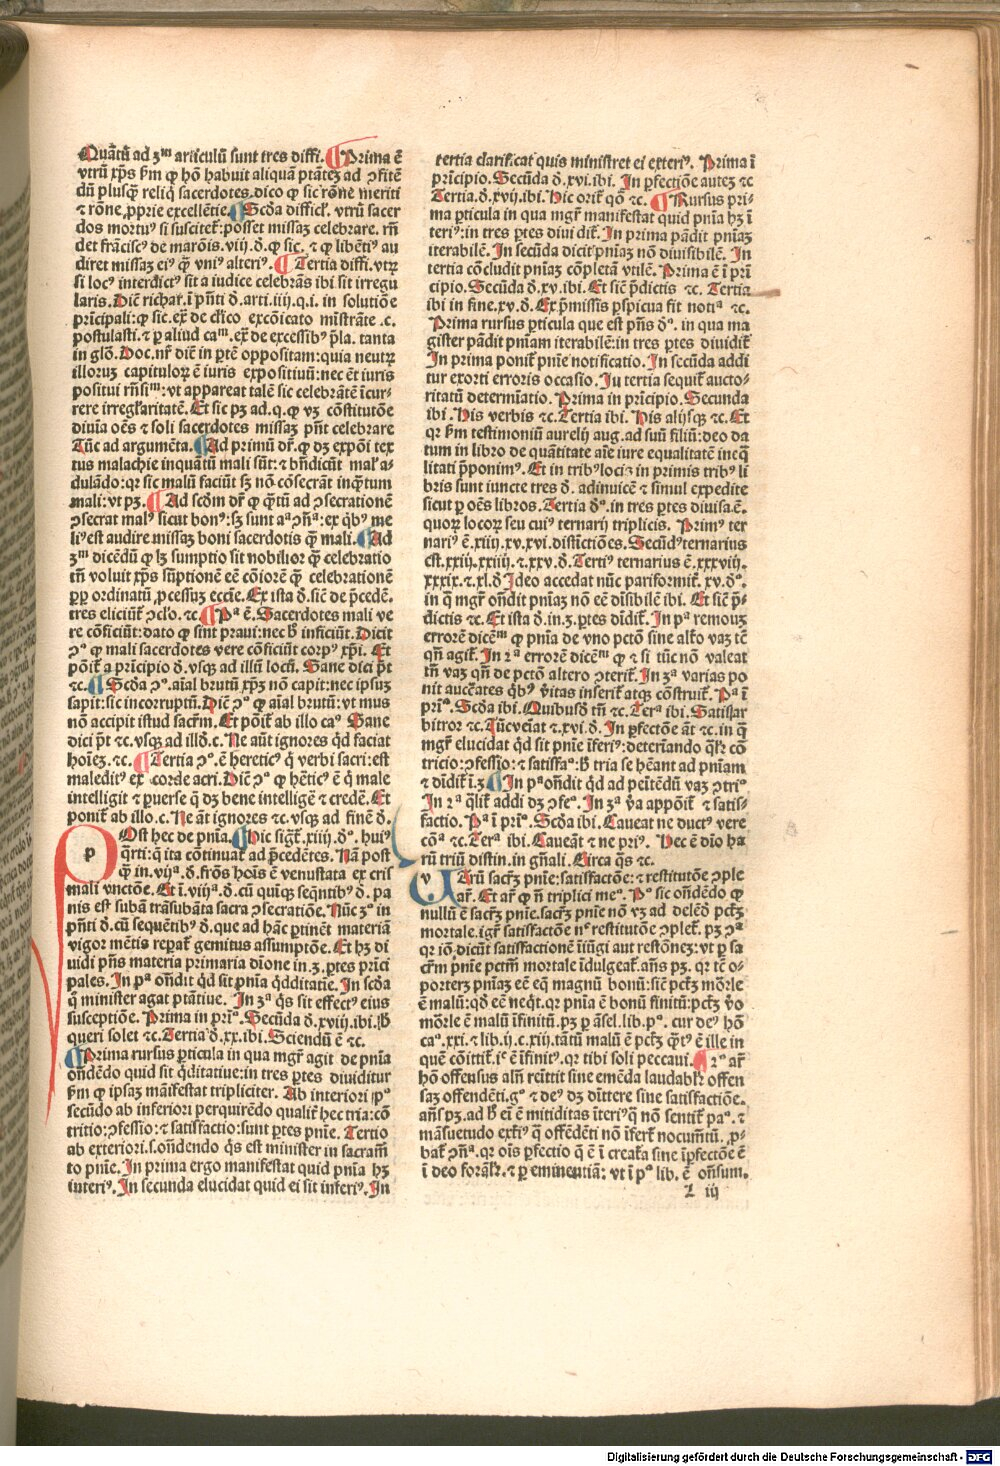 Quātū ad ʒᵐ articulū sunt tres diffi. ¶ Prima ē
vtrū xp̄s ẜm ꝙ hō habuit aliquā ptātēꝫ ad ↄfitē
dū plusq̄ꝫ reliq̄ sacerdotes. dico ꝙ sic rōne meriti
⁊ rōne ꝓprie excellētie. ¶ Scd̄a difficl̄. vtrū sacer
dos mortuꝰ si suscitet̄: posset missaꝫ celebrare. rn̄
det frāciscꝰ de marōis. viij. d. ꝙ sic. ⁊ ꝙ libētiꝰ au
diret missaꝫ eiꝰ q̄ꝫ vniꝰ alteriꝰ. ¶ Tertia diffi. vtꝝ
si locꝰ interdictꝰ sit a iudice celebrās ibi sit irregu
laris. Dic̄ richar. ī pn̄ti d. arti. iiij. q. i. in solutiōe
prīcipali: ꝙ sic. ex̄ de cl̄ico excōicato mīstrāte .c.
postulasti. ⁊ ꝑ aliud caᵐ. ex̄ de excessibꝰ p̄la. tanta
in glo. Doc. nr̄ dic̄ in ꝑtē oppositam: quia neutꝝ
illoruꝫ capitulorꝝ ē iuris expositiuū: nec ēt iuris
positiui rn̄siᵐ: vt appareat talē sic celebrātē īcur-
rere irregl̄aritatē. Et sic pꝫ ad. q. ꝙ vꝫ cōstitutōe
diuīa oēs ⁊ soli sacerdotes missaꝫ pn̄t celebrare
Tūc ad argumēta. ¶ Ad primū dr̄. ꝙ dꝫ expōi tex
tus malachie inquātū mali sūt: ⁊ bn̄dicūt mal̄ a-
dulādo: qr sic malū faciūt sꝫ nō cōsecrāt inq̄tum
mali: vt pꝫ. ¶ Ad scdm̄ dr̄ ꝙ q̄tū ad ↄsecrationē
ↄsecrat malꝰ sicut bonꝰ: sꝫ sunt aᵃ ↄn̄ᵃ: ex q̄bꝰ me
liꝰ est audire missaꝫ boni sacerdotis q̄ꝫ mali. ¶ Ad
ʒᵐ dicēdū ꝙ lꝫ sumptio sit nobilior q̄ꝫ celebratio
tn̄ voluit xp̄s sūptionē eē cōiorē q̄ꝫ celebrationē
ꝓpꝑ ordinatū ꝓcessuꝫ eccl̄ie. Ex ista d. sic̄ de p̄cedē.
tres eliciūt̄ ↄclo. ⁊c. ¶ Pᵃ ē. Sacerdotes mali ve
re cōficiūt: dato ꝙ sint praui: nec b̄ inficiūt. Dicit
ↄᵒ ꝙ mali sacerdotes vere cōficiūt corpꝰ xp̄i. Et
pōit̄ a prīcipio d. vsqꝫ ad illū locū. Sane dici p̄t
⁊c. ¶ Scd̄a ↄᵒ. aīal brutū xp̄ꝫ nō capit: nec ipsuꝫ
sapit: sic incorruptū. Dic̄ ↄᵒ ꝙ aīal brutū: vt mus
nō accipit istud sacrm̄. Et pōit̄ ab illo caᵒ Sane
dici p̄t ⁊c. vsqꝫ ad ill'd. c. Ne aūt ignores qd̄ faciat
hoīeꝫ. ⁊c. ¶ Tertia ↄᵒ. ē hereticꝰ q̄ verbi sacri: est
maledictꝰ ex corde acri. Dic̄ ↄᵒ ꝙ hēticꝰ ē q̄ male
intelligit ⁊ ꝑuerse q̄ dꝫ bene intelligē ⁊ credē. Et
ponit̄ ab illo. c. Ne āt ignores ⁊c. vsqꝫ ad finē d.
POst hec de pnīa. ¶ Hic sigt̄. xiiij. dᵒ. huiꝰ
q̄rti: q̄ ita cōtinuat̄ ad p̄cedētes. Nā post
q̄ꝫ in. vijᵃ. d. frōs hoīs ē venustata ex cris
mali vnctōe. Et ī. viijᵃ. d. cū quīqꝫ seq̄ntibꝰ d. pa
nis est subāa trāsubāta sacra ↄsecratiōe. Nūc ʒᵒ in
pn̄ti d. cū sequētibꝰ d. que ad hāc ꝑtinēt materiā
vigor mētis reꝑat̄ gemitus assumptōe. Et hꝫ di
uidi pn̄s materia primaria diōne in. ʒ. ꝑtes prīci
pales. In pᵃ on̄dit qd̄ sit pnīa qd̄ditatīe. In scd̄a
q̄ minister agat ptātiue. In ʒᵃ qs̄ sit effectꝰ eius
susceptiōe. Prima in prīᵒ. Secūda d. xviij. ibi. b̄
queri solet ⁊c. Tertia d. xx. ibi. Sciendū ē ⁊c.
¶ Prima rursus ꝑticula in qua mgr̄ agit de pnīa
on̄dēdo quid sit qd̄ditatiue: in tres ꝑtes diuiditur
ẜm ꝙ ipsaꝫ māifestat tripliciter. Ab interiori pᵒ
secūdo ab inferiori perquirēdo qualit̄ hec tria: cō
tritio: ↄfessio: ⁊ satisfactio: sunt ꝑtes pnīe. Tertio
ab exteriori. s. on̄dendo qs̄ est minister in sacram̄
to pnīe. In prima ergo manifestat quid pnīa hꝫ
interiꝰ. In secunda elucidat quid ei sit inferiꝰ. In
tertia clarificat quis ministret ei exteriꝰ. Prima ī
prīcipio. Secūda d. xvi. ibi. In ꝑfectiōe auteꝫ ⁊c
Tertia. d. xvij. ibi. Hic orit̄ qō ⁊c. ¶ Rursus pri-
ma ꝑticula in qua mgr̄ manifestat quid pnīa hꝫ ī
teriꝰ: in tres ꝑtes diuidit̄. In prima pādit pnīaꝫ
iterabilē. In secūda dicit pnīaꝫ nō diuisibilē. In
tertia cōcludit pnīaꝫ cōpletā vtilē. Prima ē ī prī
cipio. Secūda d. xv. ibi. Et sic̄ p̄dictis ⁊c. Tertia
ibi in fine. xv. d. Ex p̄missis ꝑspicua fit notiᵃ ⁊c.
Prima rursus ꝑticula que est pn̄s dᵒ. in qua ma
gister pādit pnīam iterabilē: in tres ꝑtes diuidit̄
In prima ponit̄ pnīe notificatio. In secūda addi
tur exorti erroris occasio. In tertia sequit̄ aucto-
ritatū determīatio. Prima in prīcipio. Secunda
ibi. His verbis ⁊c. Tertia ibi. His alijsqꝫ ⁊c. Et
qr ẜm testimoniū aurelij aug. ad suū filiū: deo da
tum in libro de quātitate aīe iure equalitatē ineq̄
litati p̄ponimꝰ. Et in tribꝰ locis in primis tribꝰ li
bris sunt iuncte tres d. adinuicē ⁊ simul expedite
sicut ꝑ oēs libros. Tertia dᵒ. in tres ꝑtes diuisa ē.
quorꝫ locorꝫ seu cuiꝰ ternarij triplicis. Primꝰ ter
nariꝰ ē. xiiij. xv. xvi. distīctiōes. Secūdꝰ ternarius
est. xxiij. xxiiij. ⁊. xxv. d. Tertiꝰ ternarius ē. xxxviij.
xxxix. ⁊. xl. d Ideo accedat nūc pariformit̄. xv. dᵒ.
in q̄ mgr̄ on̄dit pnīaꝫ nō eē diīsibilē ibi. Et sic̄ p̄-
dictis ⁊c. Et ista d. in. ʒ. ꝑtes dīdit̄. In pᵃ remouꝫ
errorē dicēᵐ ꝙ pnīa de vno pctō sine alio vaꝫ tē
qn̄ agit̄. In ꝛᵃ errorē dicēᵐ ꝙ ⁊ si tūc nō valeat
tn̄ vaꝫ qn̄ de pctō altero ↄterit̄. In ʒᵃ varias po
nit aucētes q̄bꝰ v̄itas inserit̄ atqꝫ cōstruit̄. Pᵃ ī
prīᵒ. Scd̄a ibi. Quibusdā tn̄ ⁊c. Terᵃ ibi. Satisfar
bitror ⁊c. Aūcēiat ⁊. xvi. d. In ꝑfectōe āt ⁊c. in q̄
mgr̄ elucidat qd̄ sit pnīe īferiꝰ: deteriādo qlr̄ cō
tricio: ↄfessio: ⁊ satisfaᵒ. b̄ tria se hēant ad pnīam
⁊ dīdit̄ ī. ʒ ¶ In pᵃ on̄dit qd̄ ad peītēdū vaꝫ ↄtrīᵒ
In ꝛᵃ q̄lit̄ addi dꝫ ↄfeᵒ. In ʒᵃ v̄a appōit̄ ⁊ satis-
factio. Pᵃ ī prīᵒ. Scd̄a ibi. Caueat ne ductꝰ vere
cōᵃ ⁊c. Terᵃ ibi. Caueāt ⁊ ne prīᵒ. Hec ē dīo ha
rū triū distin. in gn̄ali. Circa q̄s ⁊c.
VTrū sacrꝫ pnīe: satisfactōe: ⁊ restitutōe ↄple
at̄. Et ar̄ ꝙ n̄ triplici meᵒ. Pᵒ sic on̄dēdo ꝙ
nullū ē sacrꝫ pnīe. sacrꝫ pnīe nō vꝫ ad delēd pctꝫ
mortale. igr̄ satisfactōe nᶜ restitutōe ↄplet̄. pꝫ ↄᵃ
qr iō. dicūt satisfactionē īiūgi aut restōneꝫ: vt ꝑ sa
crm̄ pnīe pctm̄ mortale īdulgeat̄. an̄s pꝫ. qr tē o-
porterꝫ pnīaꝫ eē eq̄ magnū bonū: sic̄ pctꝫ mōrle
ē malū: qd̄ eē neqt̄. qr pnīa ē bonū finitū: pctꝫ v̄o
mōrle ē malū īfinitū. pꝫ ꝑ āsel. lib. pᵒ. cur deꝰ hō
caᵒ. xxi. ⁊ lib. ij. c. xiij. tātū malū ē pctꝫ q̄tꝰ ē ille in
quē cōittit̄. iᶜ ē īfinitꝰ. qr tibi soli peccaui. ¶ ꝛᵒ ar̄
hō offensus aln̄ reīttit sine emēda laudablr̄ offen
saꝫ offendēti. gᵒ ⁊ deꝰ dꝫ dīttere sine satisfactiōe.
an̄s pꝫ. ad b̄ eī ē mitiditas īteriꝰ q̄ nō sentit̄ paᵒ. ⁊
māsuetudo ext̄iꝰ q̄ offēdēti nō īfert̄ nocumtū. ꝓ-
bat̄ ↄn̄ᵃ. qr oīs ꝑfectio q̄ ē ī creat̄a sine īꝑfectōe ē
ī deo foral̄r. ⁊ ꝑ eminentiā: vt ī pᵒ lib. ē on̄sum.
Z iij
Digitalisierung gefördert durch die Deutsche Forschungsgemeinschaft - DFG